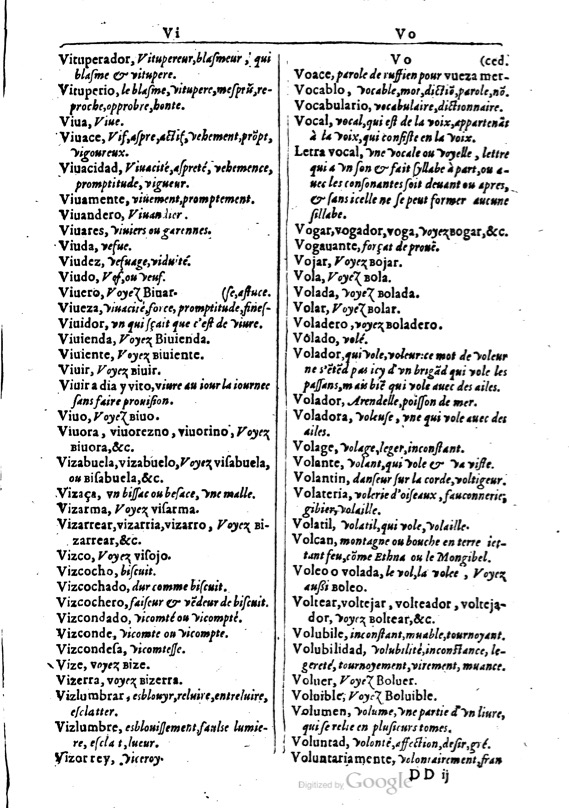 Vi
Vituperador, Vitupereur, blaſmeur, qui
blaſme & vitupere.
Vituperio, le blaſme, vitupere, meſpris̃, re-
proche, opprobre, honte.
Viua, Viue.
Viuace, Vif, aſpre, actif, vehement, prõpt,
vigoureux.
Viuacidad, Viuacité, aſpreté, vehemence,
promptitude, vigueur.
Viuamente, viuement, promptement.
Viuandero, Viuandier.
Viuares, viuiers ou garennes.
Viuda, vefue.
Viudez, vefuage, viduité.
Viudo, Vef, ou veuf.
Viuero, Voyez Biuar. (ſe, aſtuce.
Viueza, viuacité, force, promptitude, fineſ-
Viuidor, vn qui ſçait que c'eſt de viure.
Viuienda, Voyez Biuienda.
Viuiente, Voyez Biuiente.
Viuir, Voyez Biuir.
Viuir a dia y vito, viure au iour la iournee
ſans faire prouiſion.
Viuo, Voyez Biuo.
Viuora, viuorezno, viuorino, Voyez
Biuora, &c.
Vizabuela, vizabuelo, Voyez viſabuela,
ou Biſabuela, &c.
Vizaça, vn biſſac ou beſace, vne malle.
Vizarma, Voyez viſarma.
Vizarrear, vizarria, vizarro, Voyez Bi-
zarrear, &c.
Vizco, Voyez viſojo.
Vizcocho, biſcuit.
Vizcochado, dur comme biſcuit.
Vizcochero, faiſeur & vẽdeur de biſcuit.
Vizcondado, vicomté ou vicompté.
Vizconde, vicomte ou vicompte.
Vizcondeſa, vicomteſſe.
Vize, voyez Bize.
Vizerra, voyez Bizerra.
Vizlumbrar, esblouyr, reluire, entreluire,
eſclatter.
Vizlumbre, esblouiſſement, faulſe lumie-
re, eſclat, lueur.
Vizorrey, Viceroy.
Vo
Vo (ced.
Voace, parole de ruffien pour vueza mer-
Vocablo, vocable, mot, dictiõ, parole, nõ.
Vocabulario, vocabulaire, dictionnaire.
Vocal, vocal, qui eſt de la voix, appartenãt
à la voix, qui conſiſte en la voix.
Letra vocal, vne vocale ou voyelle, lettre
qui a vn ſon & fait ſyllabe à part, ou a-
uec les conſonantes ſoit deuant ou apres,
& ſans icelle ne ſe peut former aucune
ſillabe.
Vogar, vogador, voga, voyez Bogar, &c.
Vogauante, forçat de prouë.
Vojar, Voyez Bojar.
Vola, Voyez Bola.
Volada, voyez Bolada.
Volar, Voyez Bolar.
Voladero, voyez Boladero.
Volado, volé.
Volador, qui vole, voleur: ce mot de voleur
ne s'ẽtẽd pas icy d'vn brigãd qui vole les
paſſans, mais biẽ qui vole auec des ailes.
Volador, Arendelle, poiſſon de mer.
Voladora, voleuſe, vne qui vole auec des
ailes.
Volage, volage, leger, inconſtant.
Volante, volant, qui vole & va viſte.
Volantin, danſeur ſur la corde, voltigeur.
Volateria, volerie d'oiſeaux, fauconnerie,
gibier, volaille.
Volatil, volatil, qui vole, volaille.
Volcan, montagne ou bouche en terre iet-
tant feu, cõme Ethna ou le Mongibel.
Voleo o volada, le vol, la volee, Voyez
auſſi Boleo.
Voltear, voltejar, volteador, volteja-
dor, voyez Boltear, &c.
Volubile, inconſtant, muable, tournoyant.
Volubilidad, volubilité, inconſtance, le-
gereté, tournoyement, virement, muance.
Voluer, Voyez Boluer.
Voluible, Voyez Boluible.
Volumen, volume, vne partie d'vn liure,
qui ſe relie en pluſieurs tomes.
Voluntad, volonté, affection, deſir, gré.
Voluntariamente, volontairement, fran
DD ij
Digitized by Google